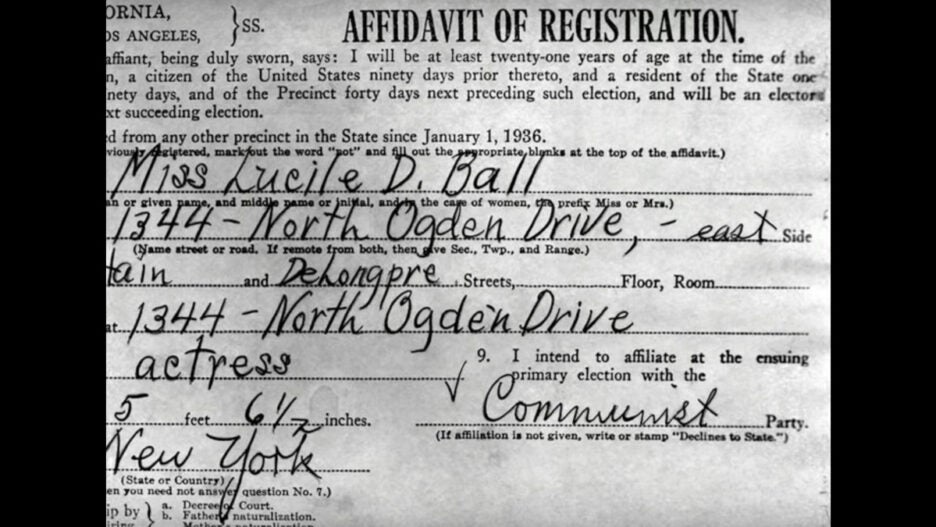 ORNIA,
OS ANGELES,
} SS.
AFFIDAVIT OF REGISTRATION.
affiant, being duly sworn, says: I will be at least twenty-one years of age at the time of the
n, a citizen of the United States ninety days prior thereto, and a resident of the State one
nety days, and of the Precinct forty days next preceding such election, and will be an elector
xt succeeding election.
ed from any other precinct in the State since January 1, 1936.
viously registered, mark out the word "not" and fill out the appropriate blanks at the top of the affidavit.)
Miss Lucile D. Ball
an or given name, and middle name or initial, and in the case of women, the prefix Miss or Mrs.)
1344 - North Ogden Drive, - east Side
(Name street or road. If remote from both, then give Sec., Twp., and Range.)
tain and DeLongpre Streets, Floor, Room
at 1344 - North Ogden Drive
actress
9. I intend to affiliate at the ensuing
primary election with the
Communist Party.
(If affiliation is not given, write or stamp "Declines to State.")
5 feet 6 1/2 inches.
New York
(State or Country)
en you need not answer question No. 7.)
ip by } a. Decree of Court.
b. Father's naturalization.